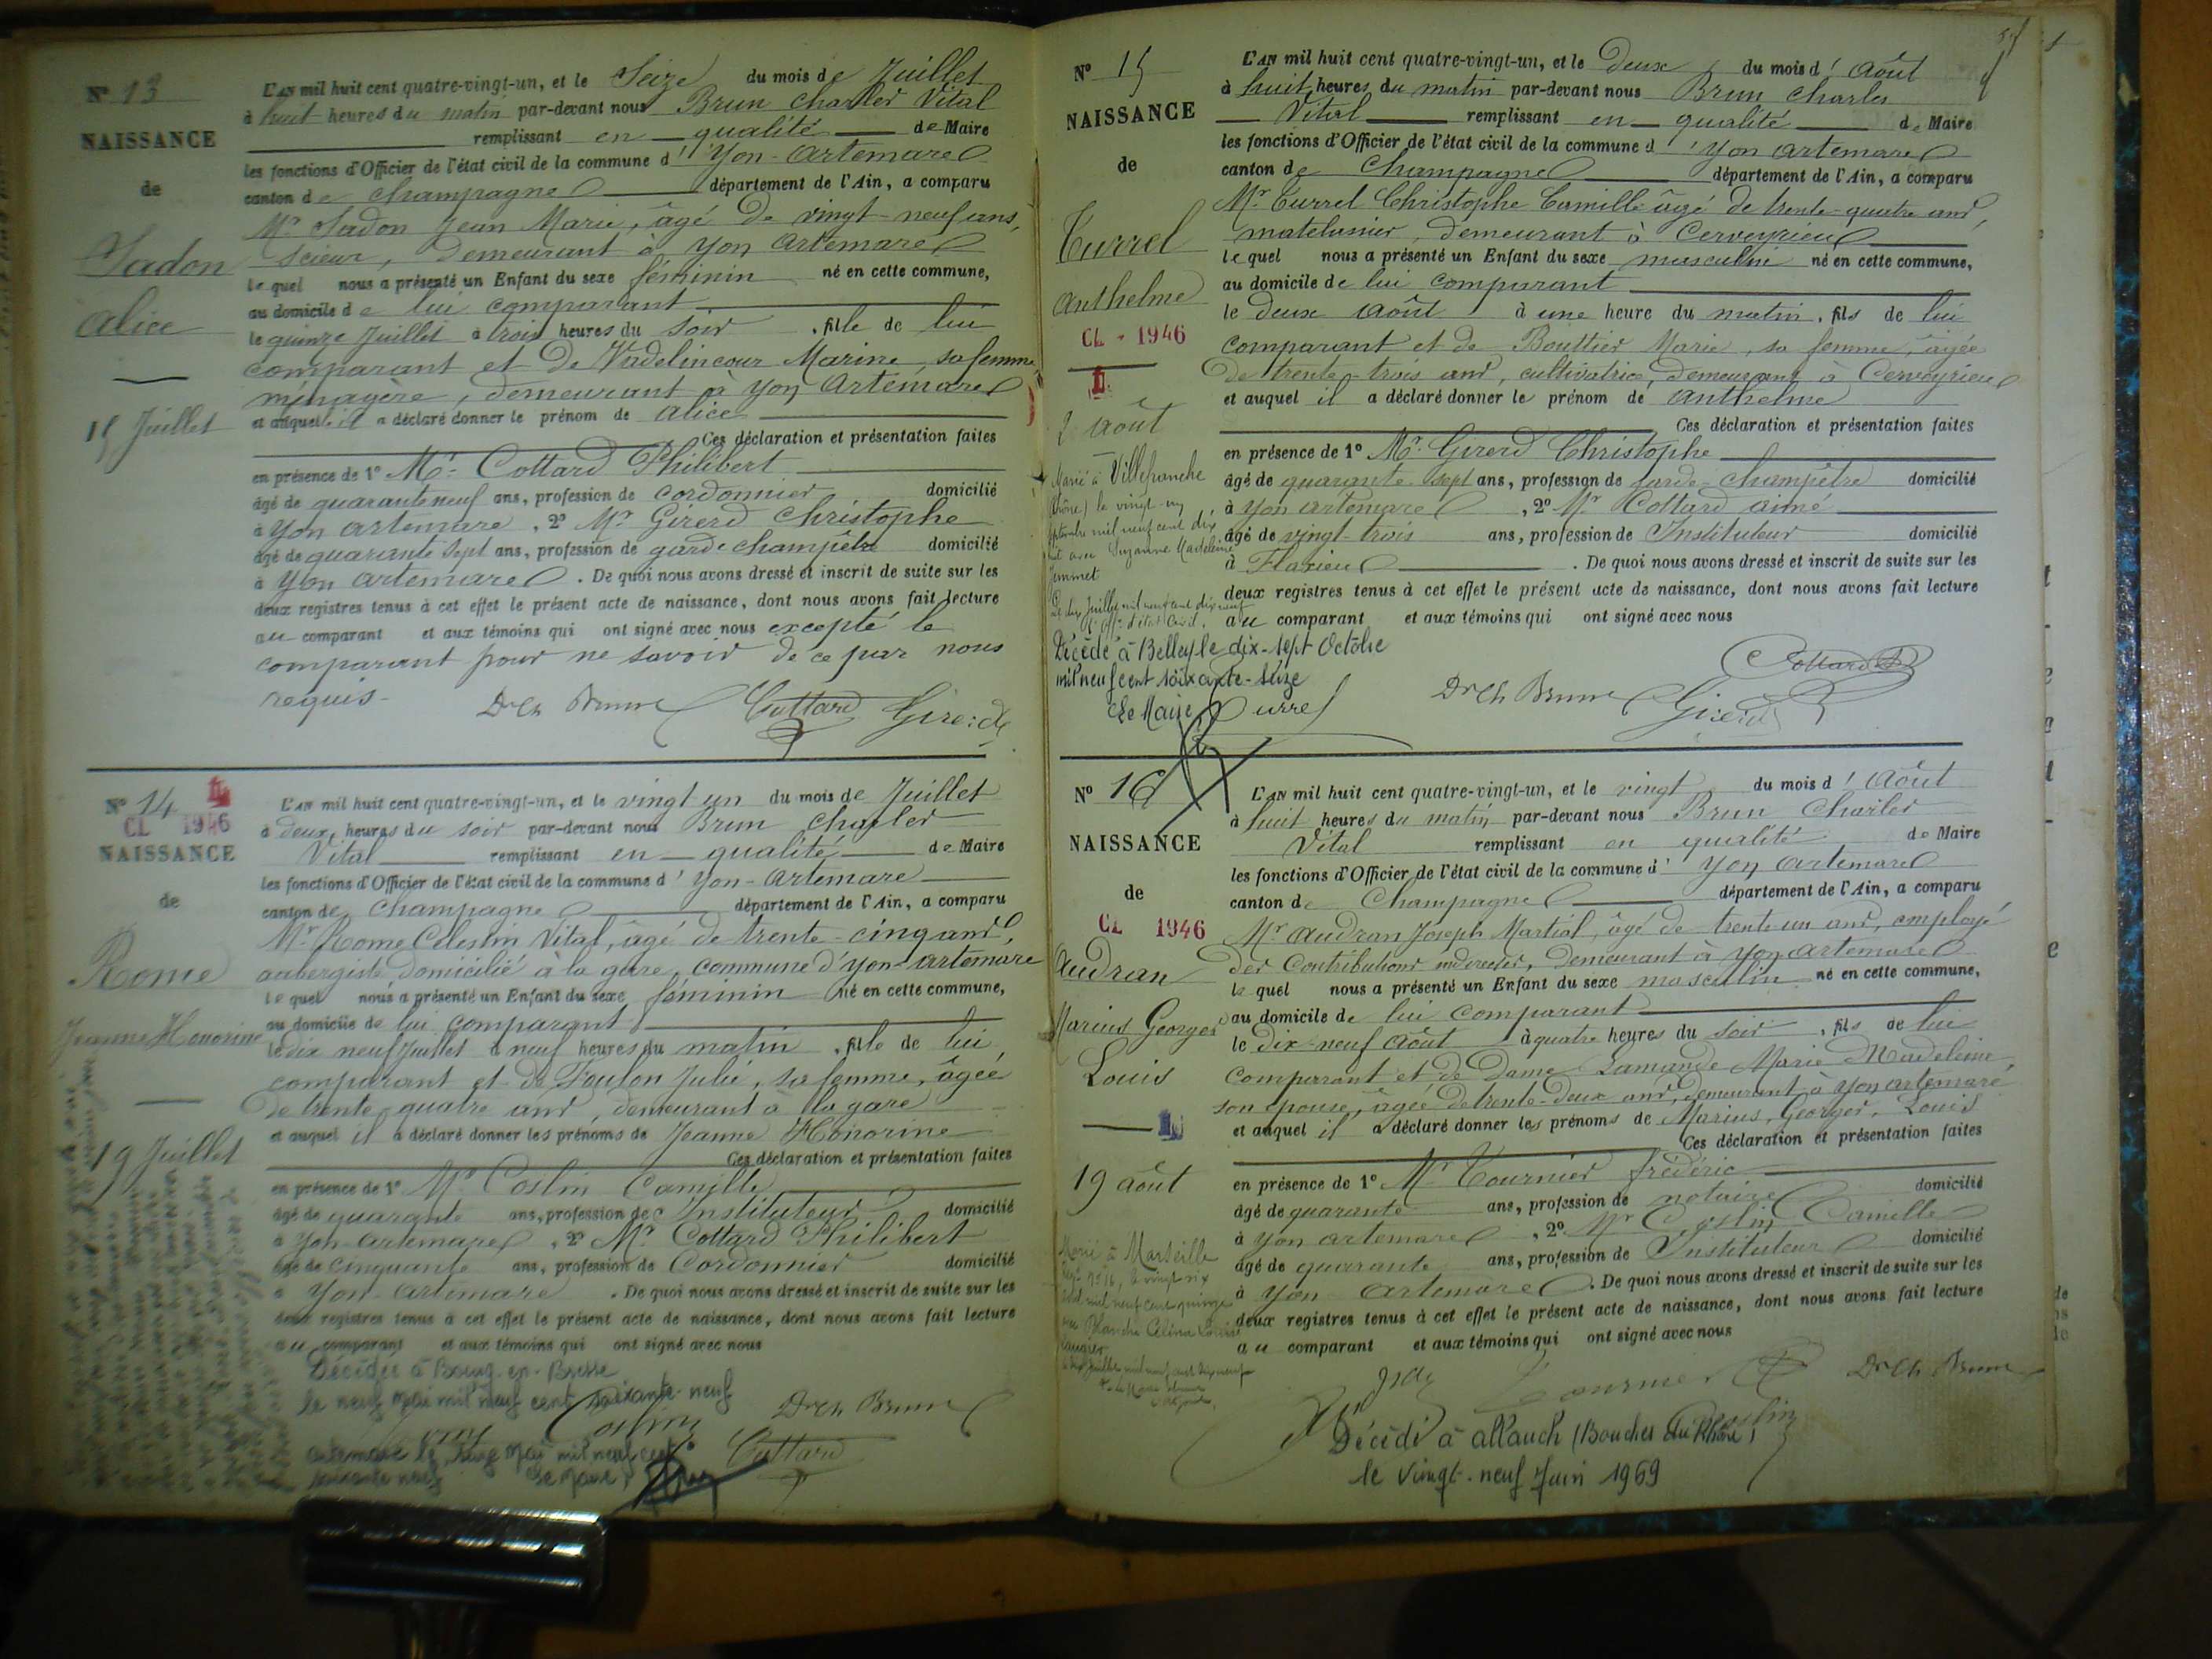 N° 13
NAISSANCE
de
Sadon
Alice
15 Juillet
L'AN mil huit cent quatre-vingt-un, et le Seize du mois de Juillet
à huit heures du matin par-devant nous Brun Charles Vital
remplissant en qualité de Maire
les fonctions d'Officier de l'état civil de la commune d'Yon-Artemare
canton de Champagne département de l'Ain, a comparu
Mr Sadon Jean Marie, âgé de vingt-neuf ans,
scieur, demeurant à Yon Artemare
lequel nous a présenté un Enfant du sexe féminin né en cette commune,
au domicile de lui comparant
le quinze Juillet à trois heures du soir, fille de lui
comparant et de Marine, sa femme
ménagère, demeurant à Yon Artemare
et auquel il a déclaré donner le prénom de Alice
Ces déclaration et présentation faites
en présence de 1° Mr Cottard Philibert
âgé de quarante neuf ans, profession de cordonnier domicilié
à Yon Artemare, 2° Mr Girerd Christophe
âgé de quarante sept ans, profession de garde champêtre domicilié
à Yon Artemare. De quoi nous avons dressé et inscrit de suite sur les
deux registres tenus à cet effet le présent acte de naissance, dont nous avons fait lecture
au comparant et aux témoins qui ont signé avec nous excepté le
comparant pour ne savoir de ce par nous
requis.
Dr Ch Brun Cottard Girerd
N° 14
CL 1946
NAISSANCE
de
Rome
Jeanne Honorine
19 Juillet
L'AN mil huit cent quatre-vingt-un, et le vingt un du mois de Juillet
à deux heures du soir par-devant nous Brun Charles
Vital remplissant en qualité de Maire
les fonctions d'Officier de l'état civil de la commune d'Yon-Artemare
canton de Champagne département de l'Ain, a comparu
Mr Rome Célestin Vital, âgé de trente-cinq ans,
aubergiste domicilié à la gare, commune d'Yon-Artemare
lequel nous a présenté un Enfant du sexe féminin né en cette commune,
au domicile de lui comparant
le dix neuf Juillet à neuf heures du matin, fille de lui
comparant et de Foulon Julie, sa femme, âgée
de trente quatre ans, demeurant à la gare
et auquel il a déclaré donner les prénoms de Jeanne Honorine
Ces déclaration et présentation faites
en présence de 1° Mr Coslin Camille
âgé de quarante ans, profession de Instituteur domicilié
à Yon Artemare, 2° Mr Cottard Philibert
âgé de cinquante ans, profession de Cordonnier domicilié
à Yon Artemare. De quoi nous avons dressé et inscrit de suite sur les
deux registres tenus à cet effet le présent acte de naissance, dont nous avons fait lecture
au comparant et aux témoins qui ont signé avec nous
Décédée à Bourg-en-Bresse
le neuf Mai mil neuf cent soixante-neuf
Coslin Dr Ch Brun
Artemare le Mai mil neuf cent
soixante neuf Le Maire, Cottard
N° 15
NAISSANCE
de
Turrel
Anthelme
CL - 1946
2 août
Marié à Villefranche
(Rhône) le vingt-un
septembre mil neuf cent dix
huit avec Suzanne Madeleine
Jemmet
Décédé à Belley le dix-sept Octobre
mil neuf cent soixante-seize
Le Maire,
L'AN mil huit cent quatre-vingt-un, et le Deux du mois d'Août
à huit heures du matin par-devant nous Brun Charles
Vital remplissant en qualité de Maire
les fonctions d'Officier de l'état civil de la commune d'Yon Artemare
canton de Champagne département de l'Ain, a comparu
Mr Turrel Christophe Camille âgé de trente-quatre ans,
matelassier, demeurant à Cerveyrieu
lequel nous a présenté un Enfant du sexe masculin né en cette commune,
au domicile de lui comparant
le deux Août à une heure du matin, fils de lui
comparant et de Bouttier Marie, sa femme, âgée
de trente-trois ans, cultivatrice, demeurant à Cerveyrieu
et auquel il a déclaré donner le prénom de Anthelme
Ces déclaration et présentation faites
en présence de 1° Mr Girerd Christophe
âgé de quarante sept ans, profession de garde-champêtre domicilié
à Yon Artemare, 2° Mr Cottard Aimé
âgé de vingt-trois ans, profession de Instituteur domicilié
à Flaxieu. De quoi nous avons dressé et inscrit de suite sur les
deux registres tenus à cet effet le présent acte de naissance, dont nous avons fait lecture
au comparant et aux témoins qui ont signé avec nous
Cottard
Turrel Dr Ch Brun Girerd
N° 16
NAISSANCE
de
CL 1946
Audran
Marius Georges
Louis
19 août
Marié à Marseille
le vingt six
mil neuf cent quinze
Blanche Célina Louise
L'AN mil huit cent quatre-vingt-un, et le vingt du mois d'Août
à huit heures du matin par-devant nous Brun Charles
Vital remplissant en qualité de Maire
les fonctions d'Officier de l'état civil de la commune d'Yon Artemare
canton de Champagne département de l'Ain, a comparu
Mr Audran Joseph Martial, âgé de trente un ans, employé
des Contributions indirectes, demeurant à Yon Artemare
lequel nous a présenté un Enfant du sexe masculin né en cette commune,
au domicile de lui comparant
le dix-neuf Août à quatre heures du soir, fils de lui
comparant et de Dame Lamande Marie Madeleine
son épouse, âgée de trente-deux ans, demeurant à Yon Artemare
et auquel il a déclaré donner les prénoms de Marius, Georges, Louis
Ces déclaration et présentation faites
en présence de 1° Mr Tournier Frédéric
âgé de quarante ans, profession de notaire domicilié
à Yon Artemare, 2° Mr Coslin Camille
âgé de quarante ans, profession de Instituteur domicilié
à Yon Artemare. De quoi nous avons dressé et inscrit de suite sur les
deux registres tenus à cet effet le présent acte de naissance, dont nous avons fait lecture
au comparant et aux témoins qui ont signé avec nous
Tournier Dr Ch Brun
Coslin
Décédé à Allauch (Bouches du Rhône)
le vingt-neuf Juin 1969